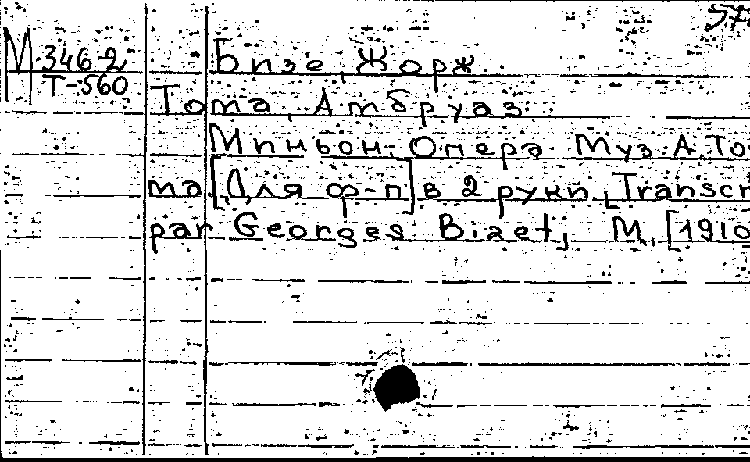 57
М 346-2
Т-560
Бизе, Жорж.
Тома, Амбруаз.
Миньон. Опера. Муз. А. То-
ма. [Для ф-п] в 2 руки, Transcr
par Georges Bizet, М, [1910